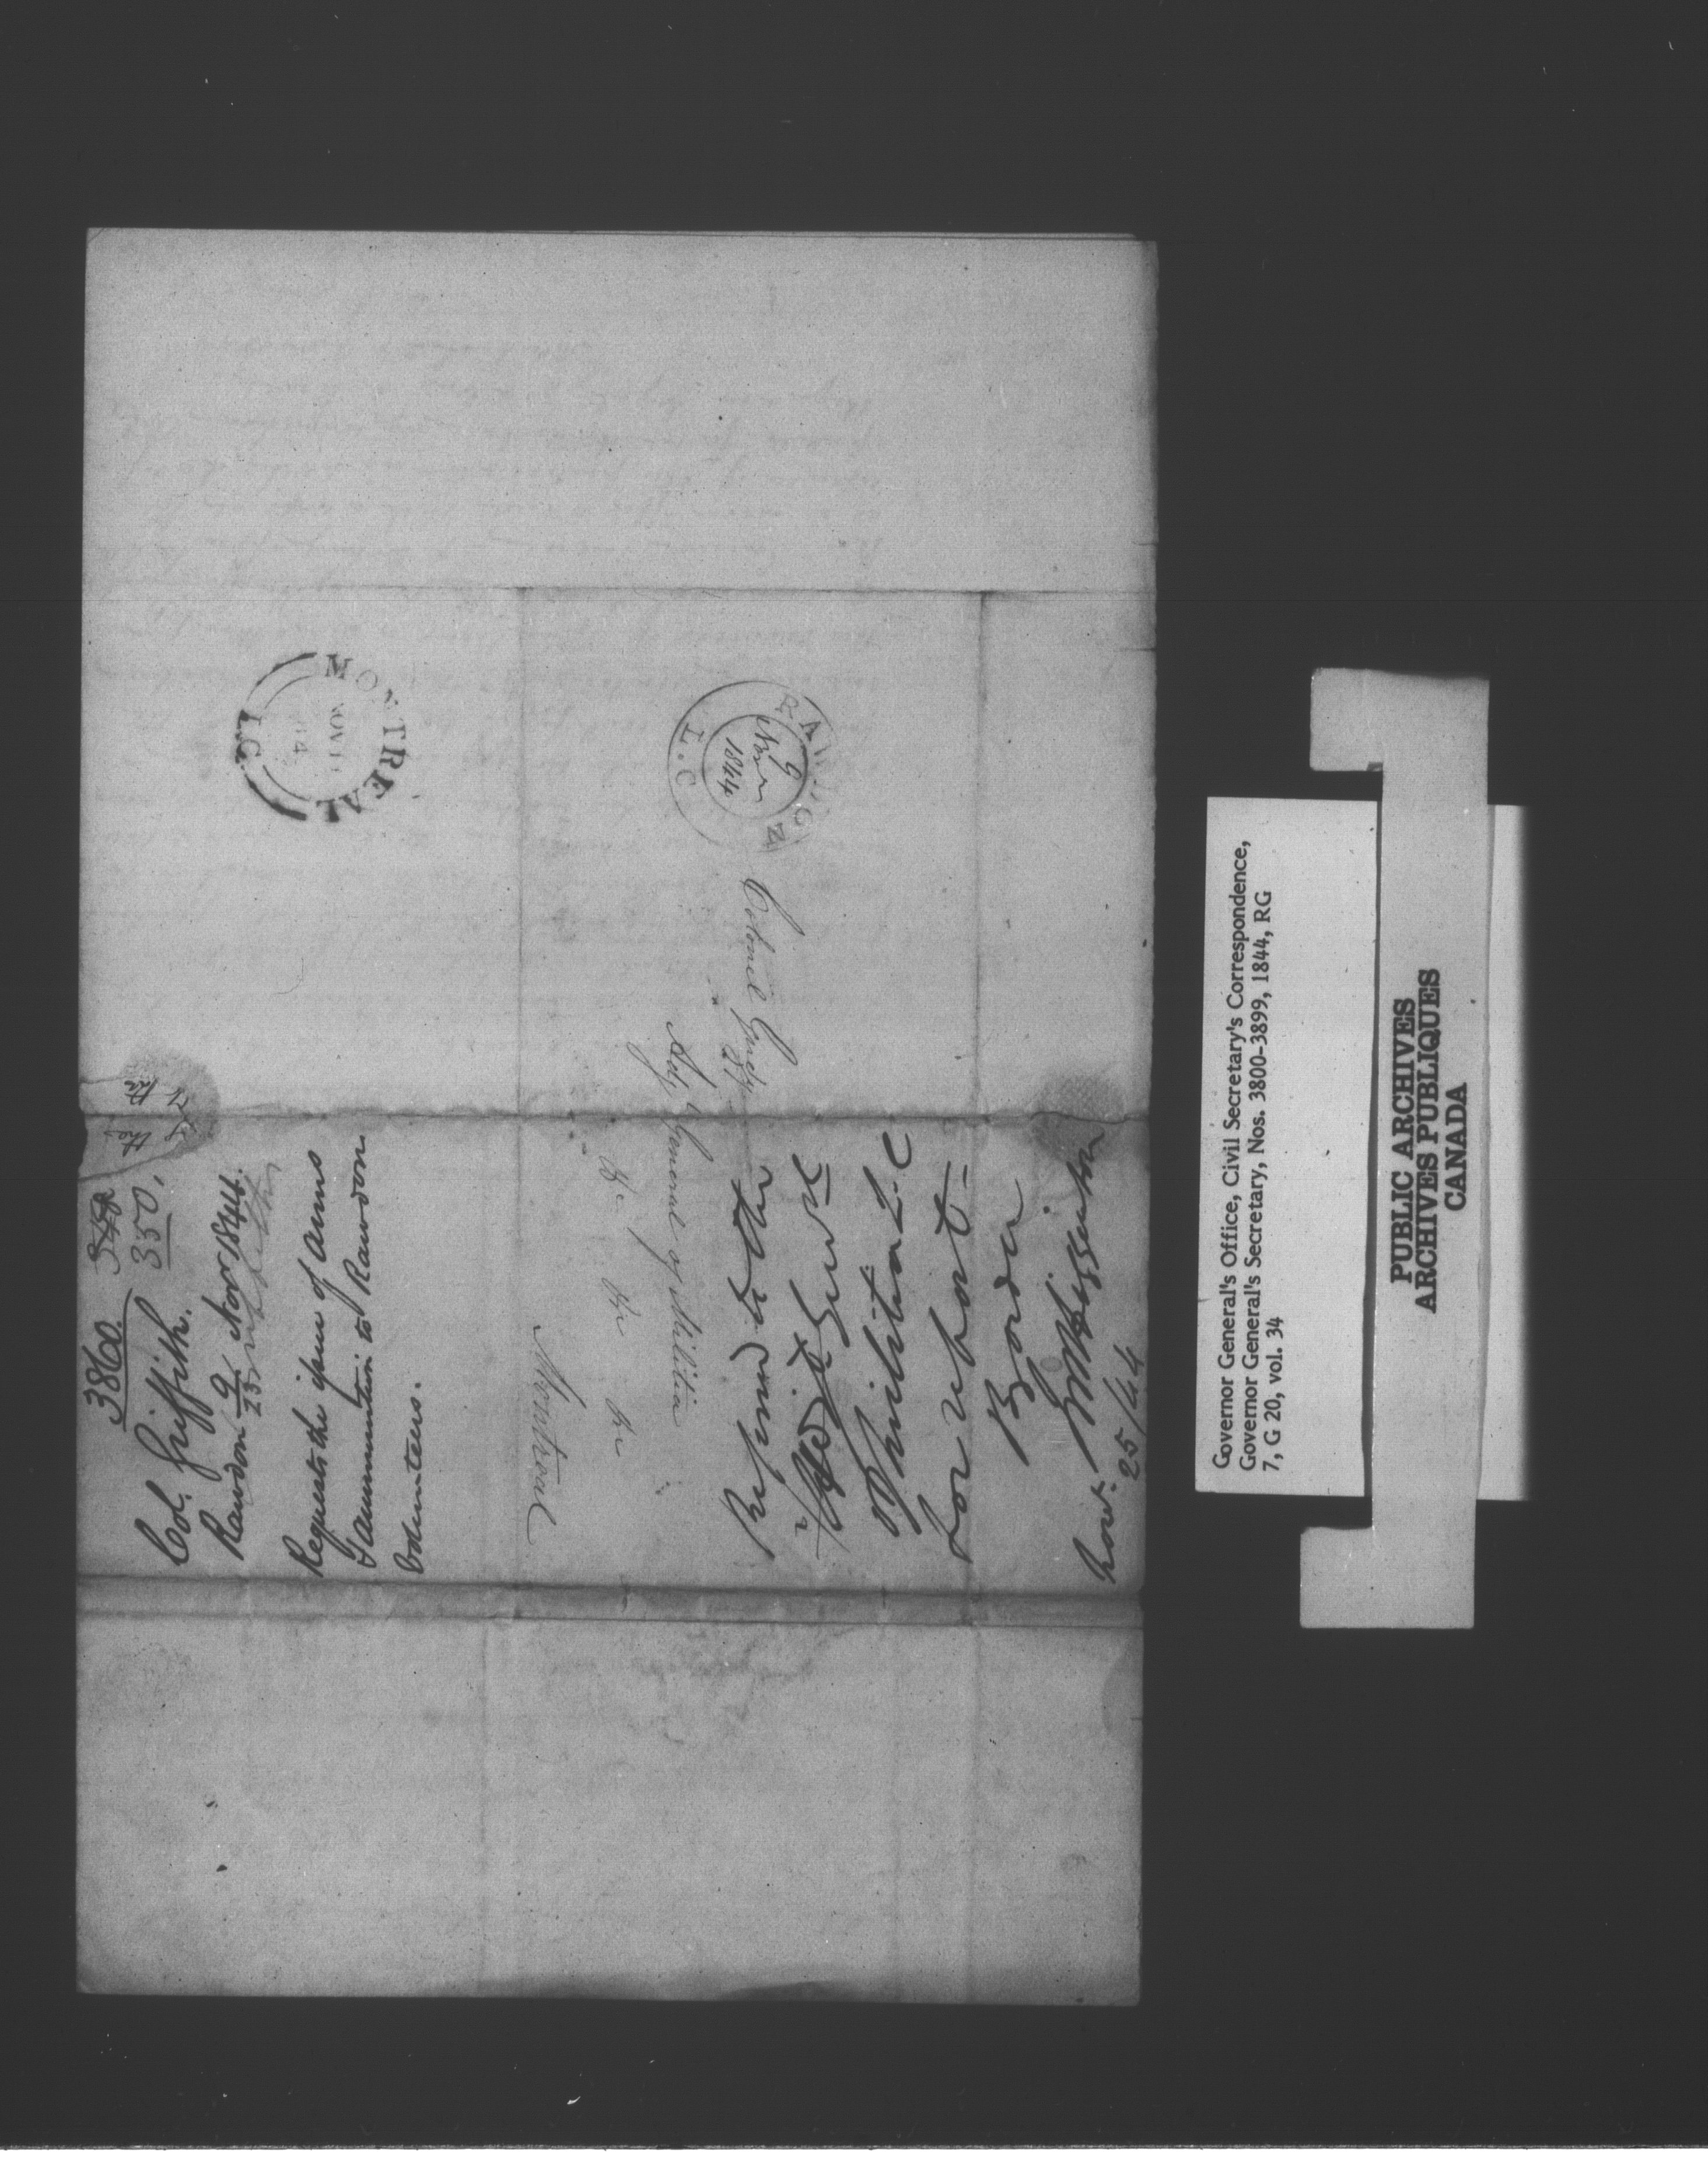 3860.
350.
Col. Griffith.
Rawdon 9 Novr 1844.
23
Requests the issue of Arms
& ammunition to Rawdon
Volunteers.
of the
MONTREAL
L.C.
NOV
RAWDON
9
Novr
1844
L.C
Colonel Gugy
Adjt General of Militia
&c &c &c
Montreal
Referred to the
Adjt Genl
Militia L.C
for report
By order
J M Higginson
Novr 25/44
Governor General's Office, Civil Secretary's Correspondence,
Governor General's Secretary, Nos. 3800-3899, 1844, RG
7, G 20, vol. 34
PUBLIC ARCHIVES
ARCHIVES PUBLIQUES
CANADA